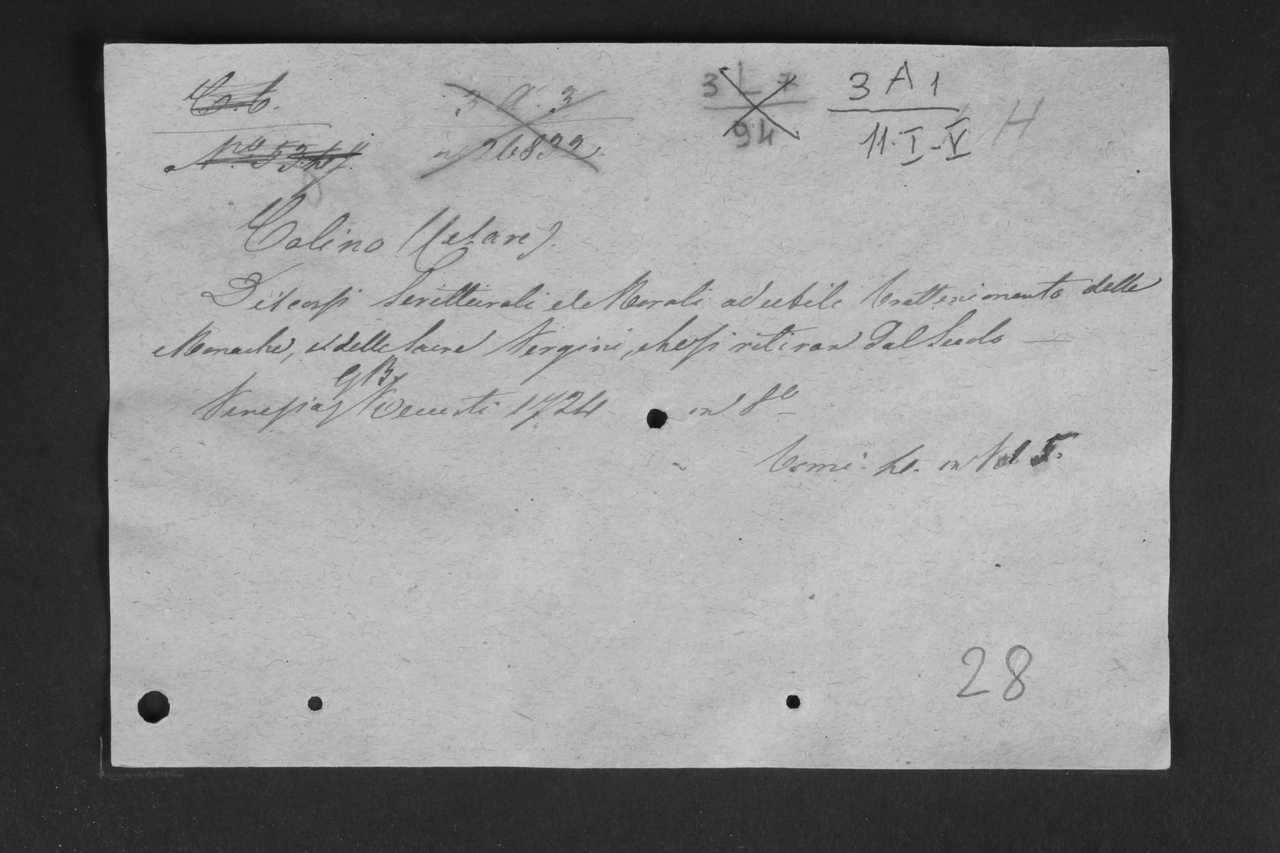 3 A 3 3 L 7 3 A 1
n 26832 94 11. I - V H
Calino (Cesare).
Discorsi Scritturali e Morali ad utile trattenimento delle
Monache, e delle Sacre Vergini, che si ritiran dal Secolo —
GB.
Venezia Recurti 1724 in 8º
Tomi in Vol 5.
28